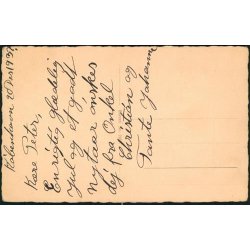 København 20 Des 1937
Kære Peter,
En rigtig glædelig
jul og et godt
nytaar ønskes
dej fra Onkel
Christian og
Tante Johanne